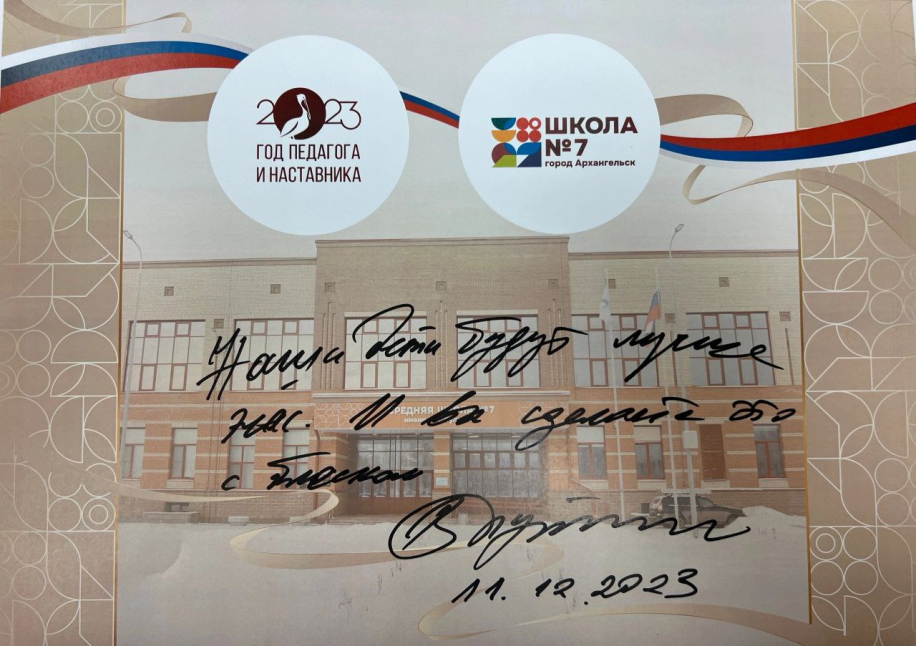 2023
ГОД ПЕДАГОГА
И НАСТАВНИКА
ШКОЛА
№7
город Архангельск
Наши дети будут лучше
нас. И вы сделаете это
с блеском
СРЕДНЯЯ ШКОЛА №7
11.12.2023